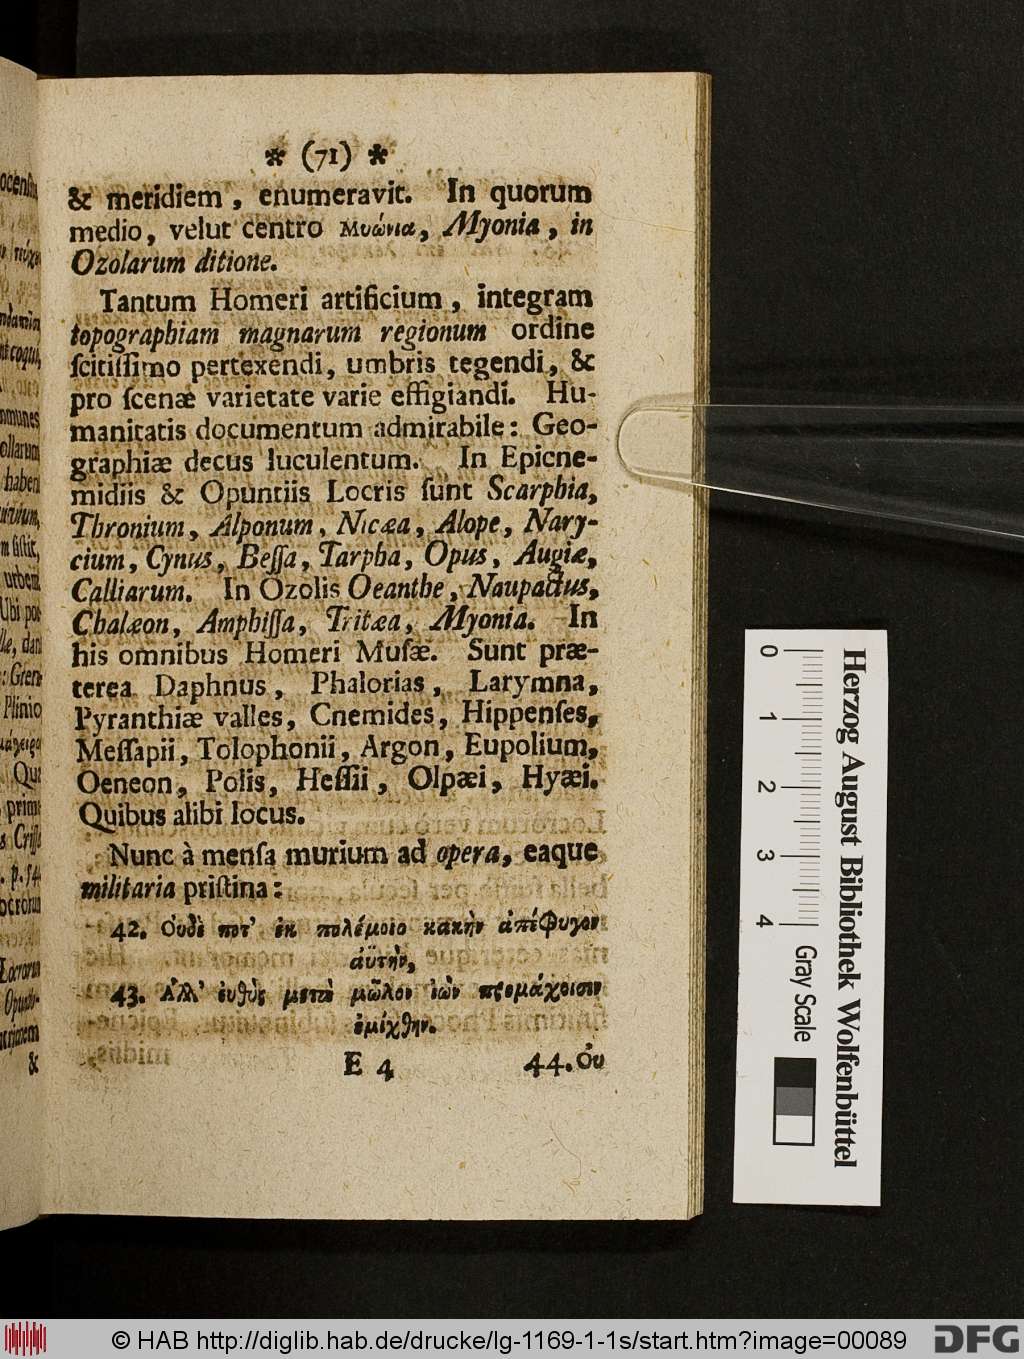 * (71) *
& meridiem, enumeravit. In quorum
medio, velut centro Μυώνια, Myonia, in
Ozolarum ditione.
Tantum Homeri artificium, integram
topographiam magnarum regionum ordine
ſcitiſſimo pertexendi, umbris tegendi, &
pro ſcenæ varietate varie effigiandi. Hu-
manitatis documentum admirabile: Geo-
graphiæ decus luculentum. In Epicne-
midiis & Opuntiis Locris ſunt Scarphia,
Thronium, Alponum, Nicæa, Alope, Nary-
cium, Cynus, Beſſa, Tarpha, Opus, Augiæ,
Calliarum. In Ozolis Oeanthe, Naupactus,
Chalæon, Amphiſſa, Tritæa, Myonia. In
his omnibus Homeri Muſæ. Sunt præ-
terea Daphnus, Phalorias, Larymna,
Pyranthiæ valles, Cnemides, Hippenſes,
Meſſapii, Tolophonii, Argon, Eupolium,
Oeneon, Polis, Heſſii, Olpæi, Hyæi.
Quibus alibi locus.
Nunc à menſa murium ad opera, eaque
militaria priſtina:
42. Οὐδὲ ποτ' ἐκ πολέμοιο κακὴν ἀπέφυγον
ἀϋτὴν,
43. Ἀλλ' εὐθὺς μετὰ μῶλον ἰὼν προμάχοισιν
ἐμίχθην.
E 4 44. Οὐ
ocenſium
munes
ollarum
habent
urbem
Ubi
Plinio
Locrorum
&
0 1 2 3 4
Gray Scale
Herzog August Bibliothek Wolfenbüttel
© HAB http://diglib.hab.de/drucke/lg-1169-1-1s/start.htm?image=00089
DFG